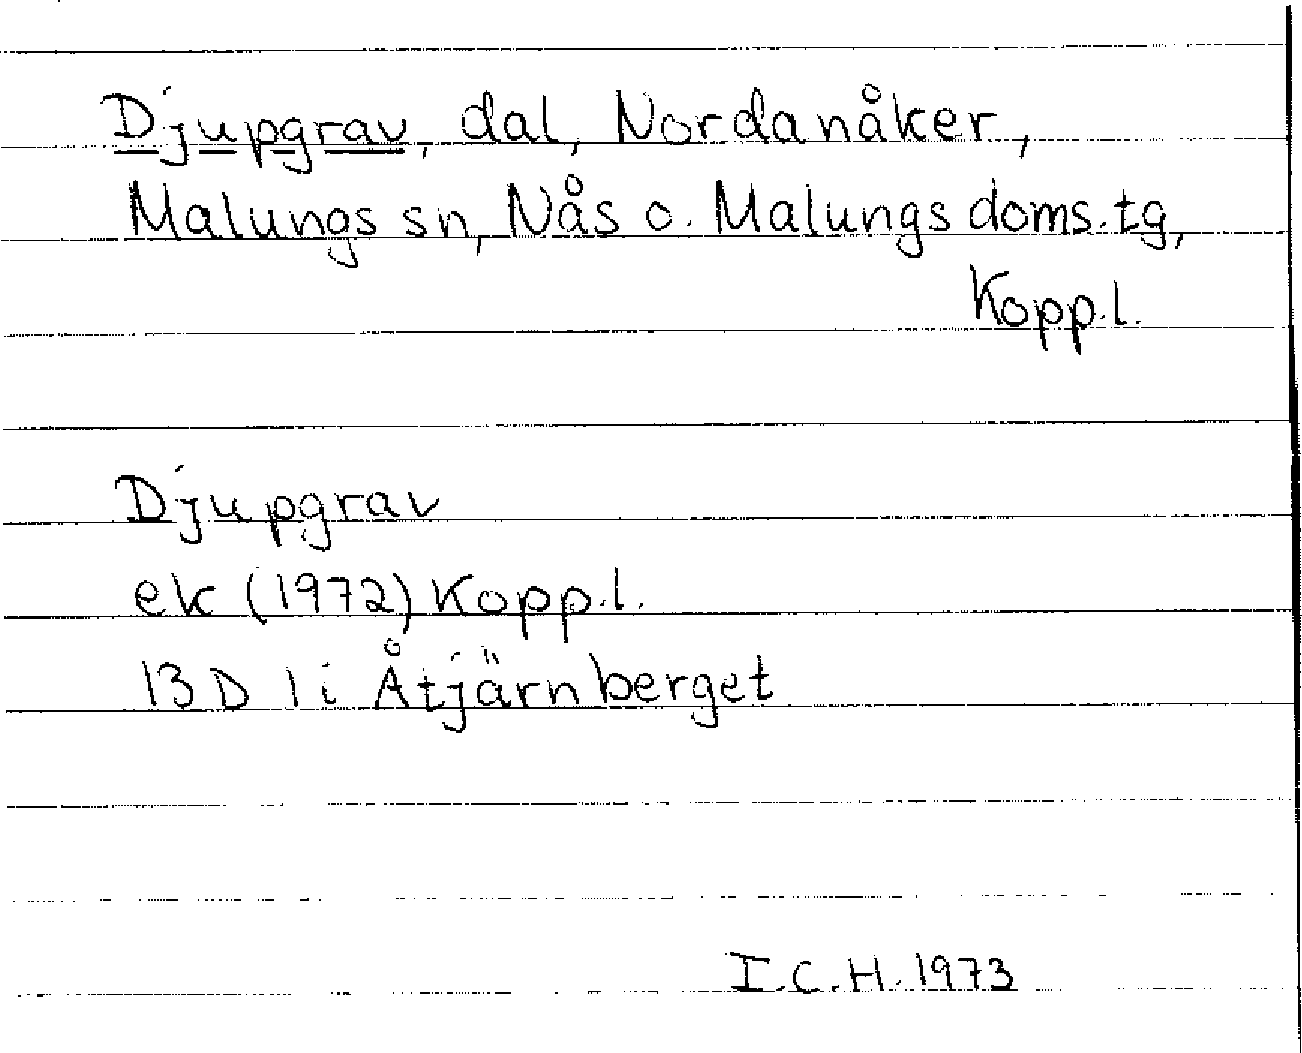 Djupgrav, dal, Nordanåker,
Malungs sn, Nås o. Malungs doms.tg,
Kopp.l.
Djupgrav
ek (1972) Kopp.l.
13 D 1 i Åtjärnberget
I.C.H. 1973